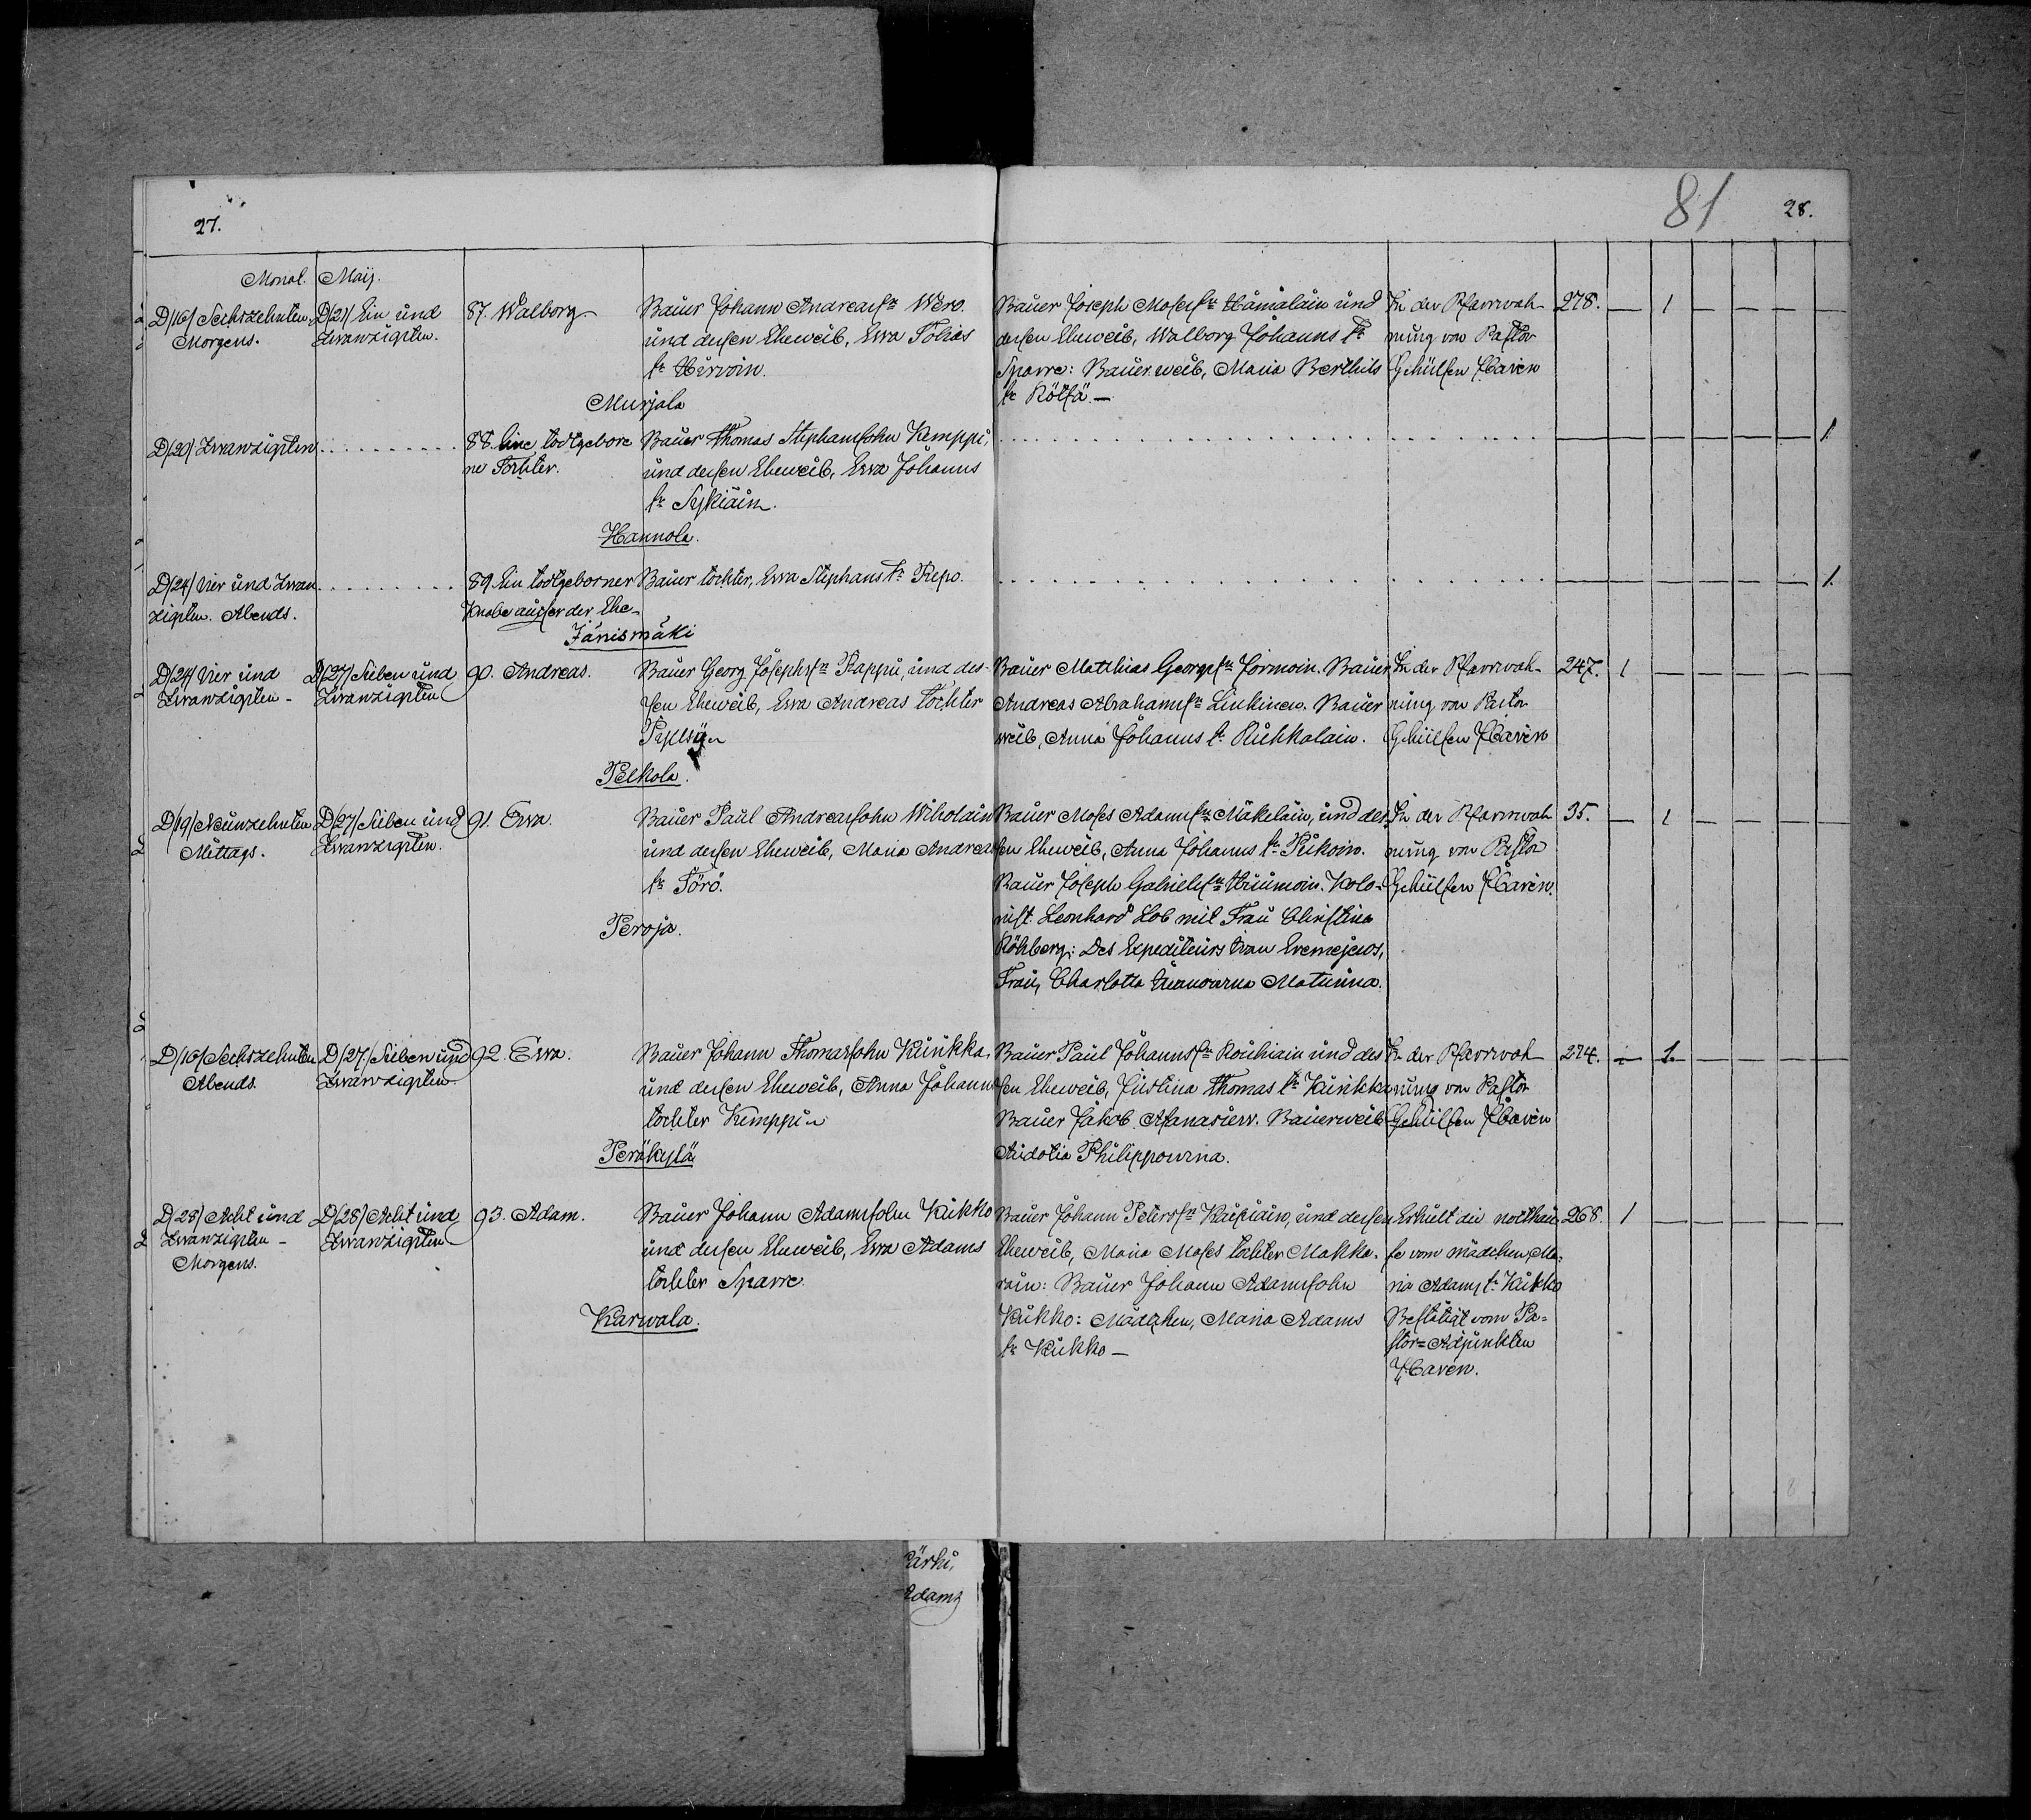 27.
81
28.
Monat. Maij.
D/16/ Sechszehnten
Morgens.
D/21/ Ein und
Zwanzigsten.
87. Walborg
Bauer Johann Andreassn Wero.
und dessen Eheweib, Ewa Tobias
tr Hirvoin.
Murjala
Bauer Joseph Mosessn Hämäläin und
dessen Eheweib, Walborg Johanns tr
Sparre: Bauerweib, Maria Berthils
tr Költä.—
In der Pfarrwoh-
nung von Pastor
Gehülfen HCavén
278. — 1 — — — —
D/20/ Zwanzigsten
88. Eine todtgebore
ne Tochter.
Bauer Thomas Stephansohn Kemppi,
und dessen Eheweib, Ewa Johanns
tr Sykiäin.
Hannola.
1.
D/24/ Vier und Zwan
zigsten. Abends.
89. Ein todtgeborner
Knabe ausser der Ehe-
Bauer tochter, Ewa Stephans tr Repo.
Jänismäki
1.
D/24/ Vier und
Zwanzigsten-
D/27/ Sieben und
Zwanzigsten
90. Andreas.
Bauer Georg Josephssn Pappu, und des-
sen Eheweib, Ewa Andreas tochter
Pelkola.
Bauer Matthias Georgssn Jormoin. Bauer
Andreas Abrahamssn Liukinen. Bauer
weib, Anna Johanns tr Ruhkalain.
In der Pfarrwoh-
nung von Pastor
Gehülfen HCavén
247. 1 — — — — —
D/19/ Neunzehnten
Mittags.
D/27/ Sieben und
Zwanzigsten.
91. Ewa.
Bauer Paul Andreassohn Wiholain
und dessen Eheweib, Maria Andreas
tr Törö.
Peroja.
Bauer Moses Adamssn Mäkeläin, und des
sen Eheweib, Anna Johanns tr Pukoin.
Bauer Joseph Gabrielssn Huumoin. Kolo-
nist. Leonhard Lob mit Frau Christina
Röhberg: Des Expediteurs Iwan Eremejews,
Frau, Charlotta Matunina.
In der Pfarrwoh
nung von Pastor
Gehülfen HCavén.
35. — 1 — — — —
D/16/ Sechszehnten
Abends.
D/27/ Sieben und
Zwanzigsten
92. Ewa.
Bauer Johann Thomassohn Kunkka,
und dessen Eheweib, Anna Johann
tochter Kemppin
Peräkylä
Bauer Paul Johannssn Rouhiain und des
sen Eheweib, Justina Thomas tr Kunkka
Bauer Jakob Afanasiew. Bauerweib
Audotia Philippowna.
In der Pfarrwoh
nung von Pastor
Gehülfen HCavén
274. — 1. — — — —
D/28/ Acht und
Zwanzigsten-
Morgens.
D/28/ Acht und
Zwanzigsten
93. Adam.
Bauer Johann Adamssohn Kukko
und dessen Eheweib, Ewa Adams
tochter Sparre.
Karwala.
Bauer Johann Peterssn Kaipiain, und dessen
Eheweib, Maria Moses tochter Makko-
rain: Bauer Johann Adamssohn
Kukko: Mädchen, Maria Adams
tr Kukko—
Erhielt die nothtau-
fe vom mädchen Ma-
ria Adams tr Kukko
Bestätigt vom Pa-
stor-Adjunkten
HCavén.
268. 1 — — — — —
ärki,
Adams